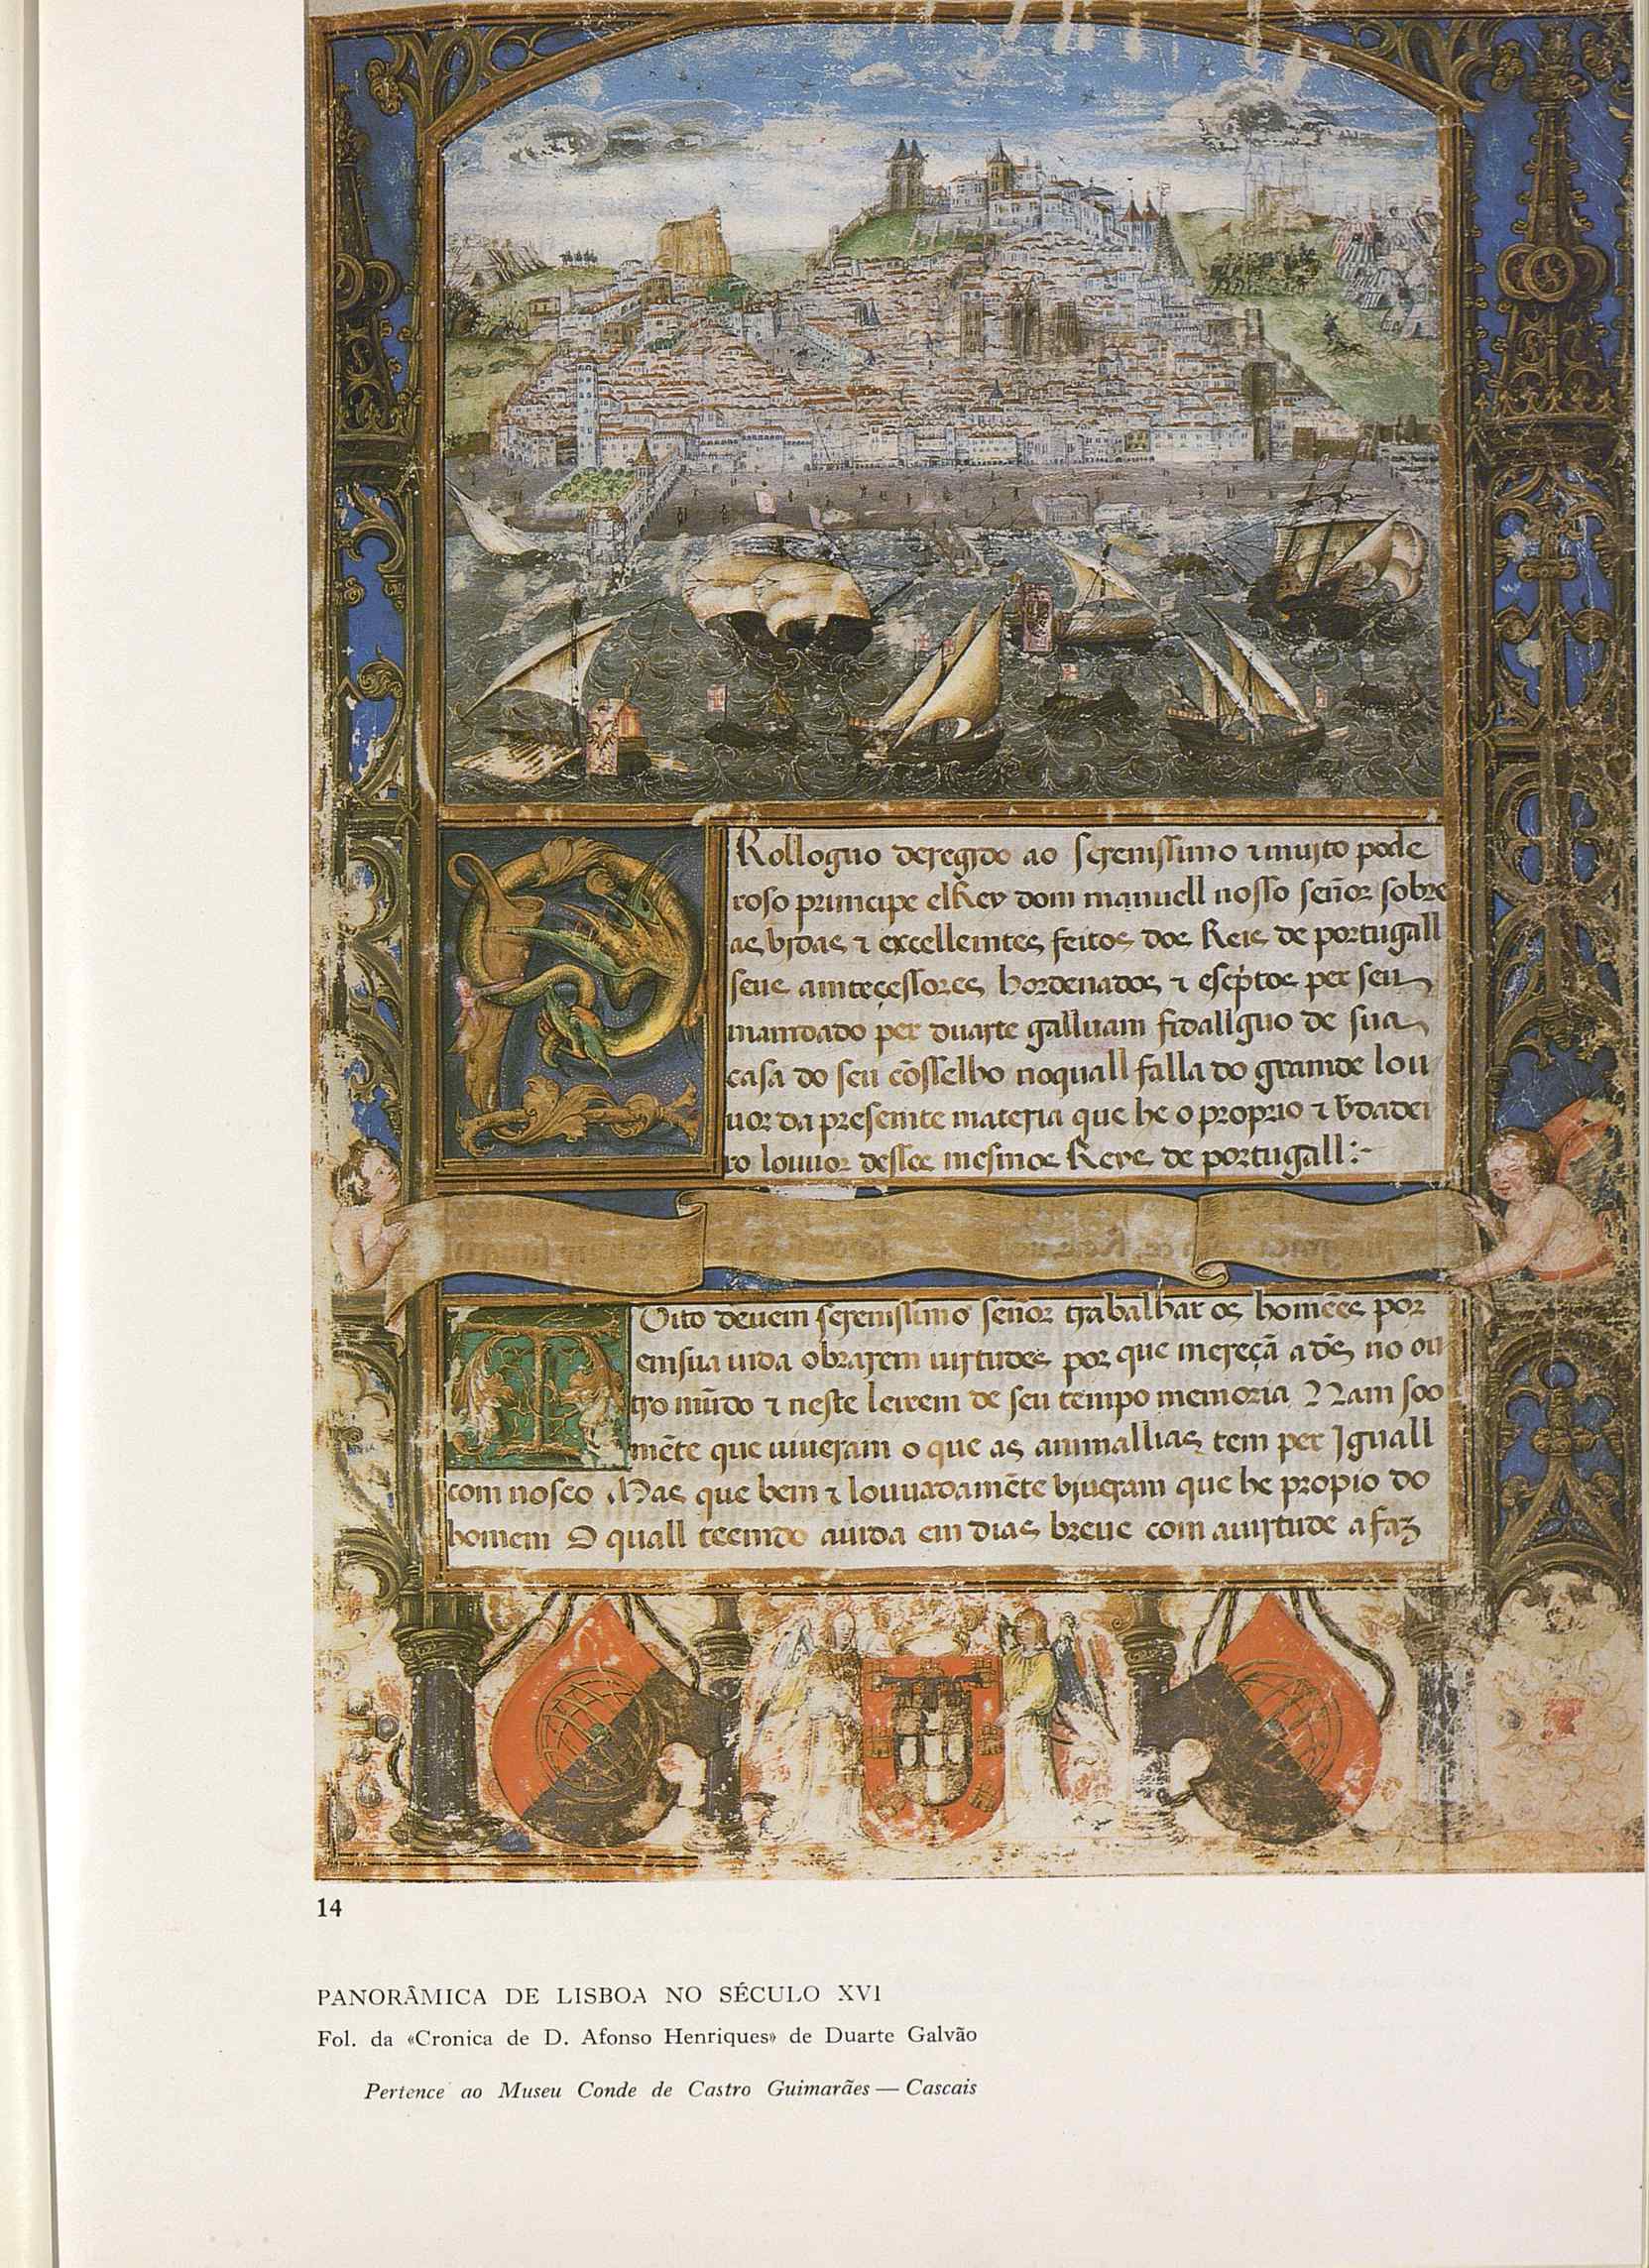 PRolloguo deregido ao serenissimo ⁊ muito pode
roso principe elRey dom manuell nosso señor sobre
as vidas ⁊ excellemtes feitos dos Reis de portugall
seus amteçessores hordenados ⁊ escptos per seu
mamdado per duarte galluam fidallguo de sua
casa do seu cõsselho noquall falla do gramde lou
uor da presemte materia que he o proprio ⁊ vdadei
ro louuor desses mesmos Reys de portugall:~
MOito deuem serenissimo señor trabalhar os homẽes por
em sua uida obrarem uirtudes por que mereçã a dẽs no ou
tro mũdo ⁊ neste leixem de seu tempo memoria Nam soo
mẽte que uiueram o que as animallias tem per Iguall
com nosco Mas que bem ⁊ louuadamẽte viueram que he propio do
homem O quall teemdo auida em dias breue com auirtude a faz
14
PANORÂMICA DE LISBOA NO SÉCULO XVI
Fol. da «Cronica de D. Afonso Henriques» de Duarte Galvão
Pertence ao Museu Conde de Castro Guimarães — Cascais